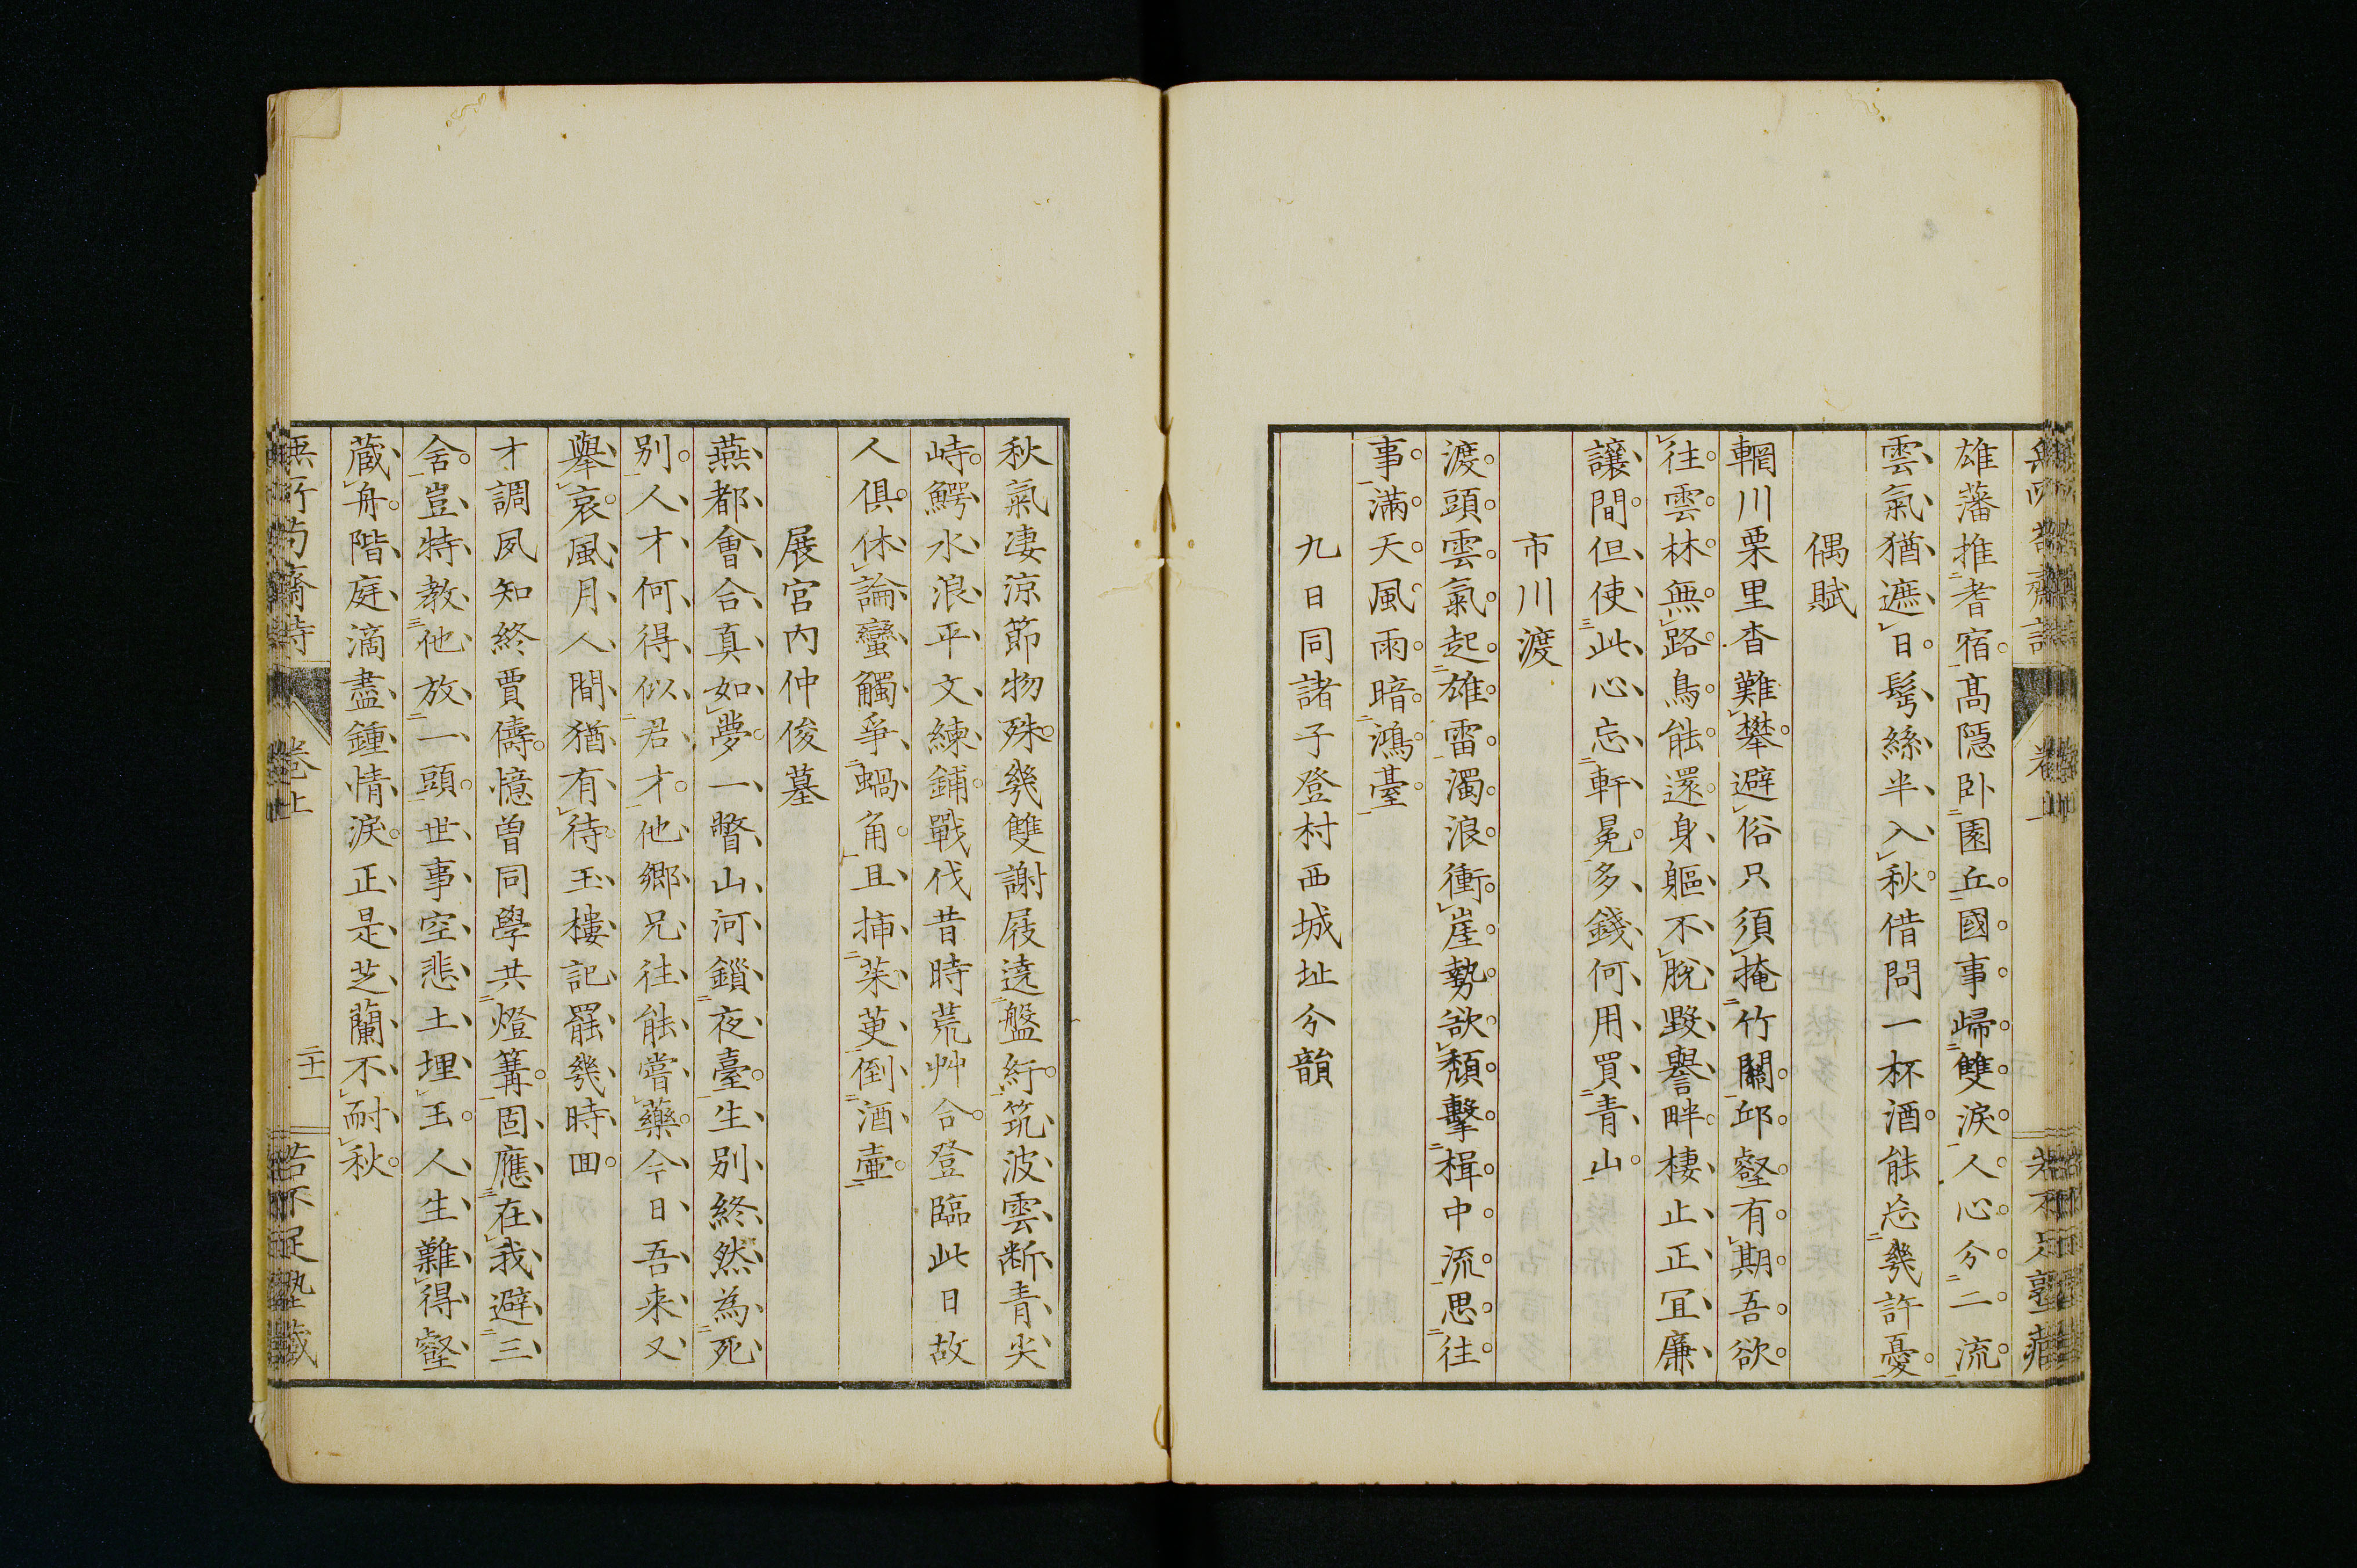 雄藩推耆宿高隠卧園丘國事歸雙淚人心分二流
雲氣猶遮日髩絲半入秋借問一杯酒能忘幾許憂
偶賦
輞川栗里杳難攀避俗只須掩竹關邱壑有期吾欲
往雲林無路鳥能還身軀不脫毀譽畔棲止正冝廉
讓間但使此心忘軒冕多錢何用買青山
市川渡
渡頭雲氣起雄雷濁浪衝崖勢欲頽擊楫中流思往
事滿天風雨暗鴻臺
九日同諸子登村西城址分韻
秋氣凄涼節物殊幾雙謝屐遶盤紆筑波雲断青尖
峙鰐水浪平文練鋪戰伐昔時荒艸合登臨此日故
人俱休論蠻觸爭蝸角且挿茱萸倒酒壷
展宮内仲俊墓
燕都會合真如夢一瞥山河鎖夜臺生别終然為死
别人才何得似君才他鄉兄往能嘗藥今日吾来又
舉哀風月人間猶有待玉樓記罷幾時回
才調夙知終賈儔憶曾同學共燈篝固應在我避三
舍豈特教他放一頭世事空悲土埋玉人生難得壑
蔵舟階庭滴盡鍾情淚正是芝蘭不耐秋
無所苟齋詩
卷上
二十一
若不足塾藏